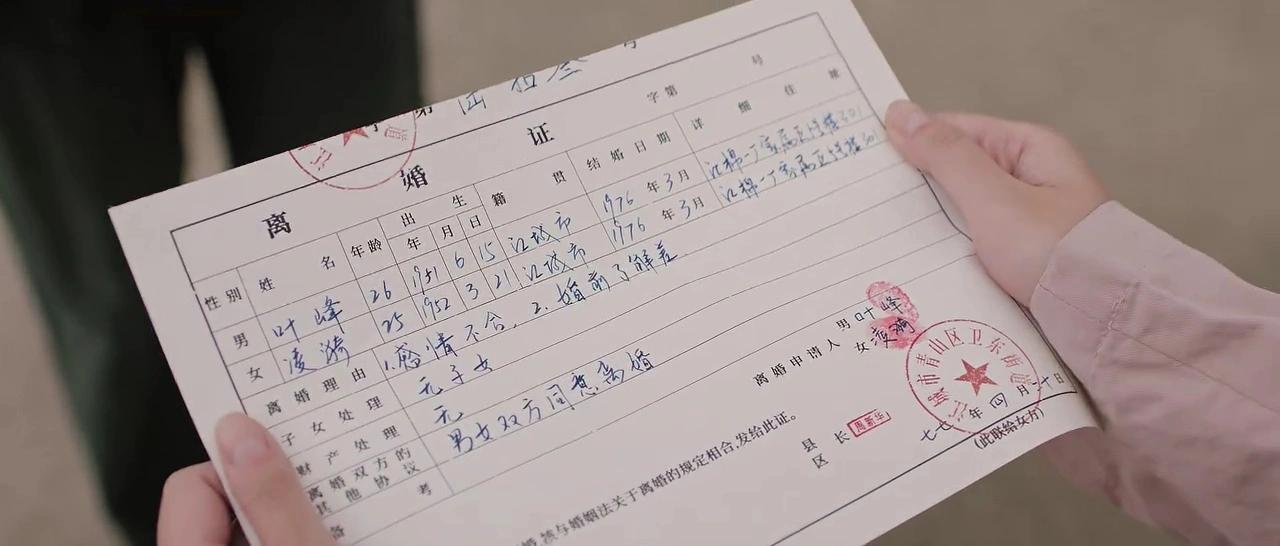 字第 陆拾叁 号
离婚证
字第 号
性别 姓名 年龄 出生 年 月 日 籍贯 结婚日期 详细住址
男 叶峰 26 1951 6 15 江城市 1976年3月 江棉一厂家属区 楼301
女 凌漪 25 1952 3 21 江城市 1976年3月 江棉一厂家属区 楼301
离婚理由 1.感情不合、2.婚前了解差
子女处理 无子女
财产处理 无
离婚双方的其他协议 男女双方同意离婚
备考
离婚申请人 男 叶峰
女 凌漪
婚,须与婚姻法关于离婚的规定相合,发给此证。
县区长 周新华
江城市青山区卫东街道
七七年四月二十日
(此联给女方)